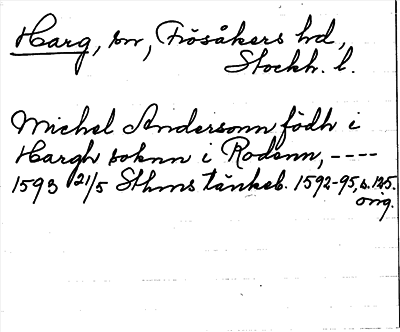 Harg, sn, Frösåkers hd,
Stockh. l.
Michel Andersonn född i
Hargh soknn i Rodenn, ----
1593 21/5 Sthms tänkeb. 1592-95, s. 125.
orig.